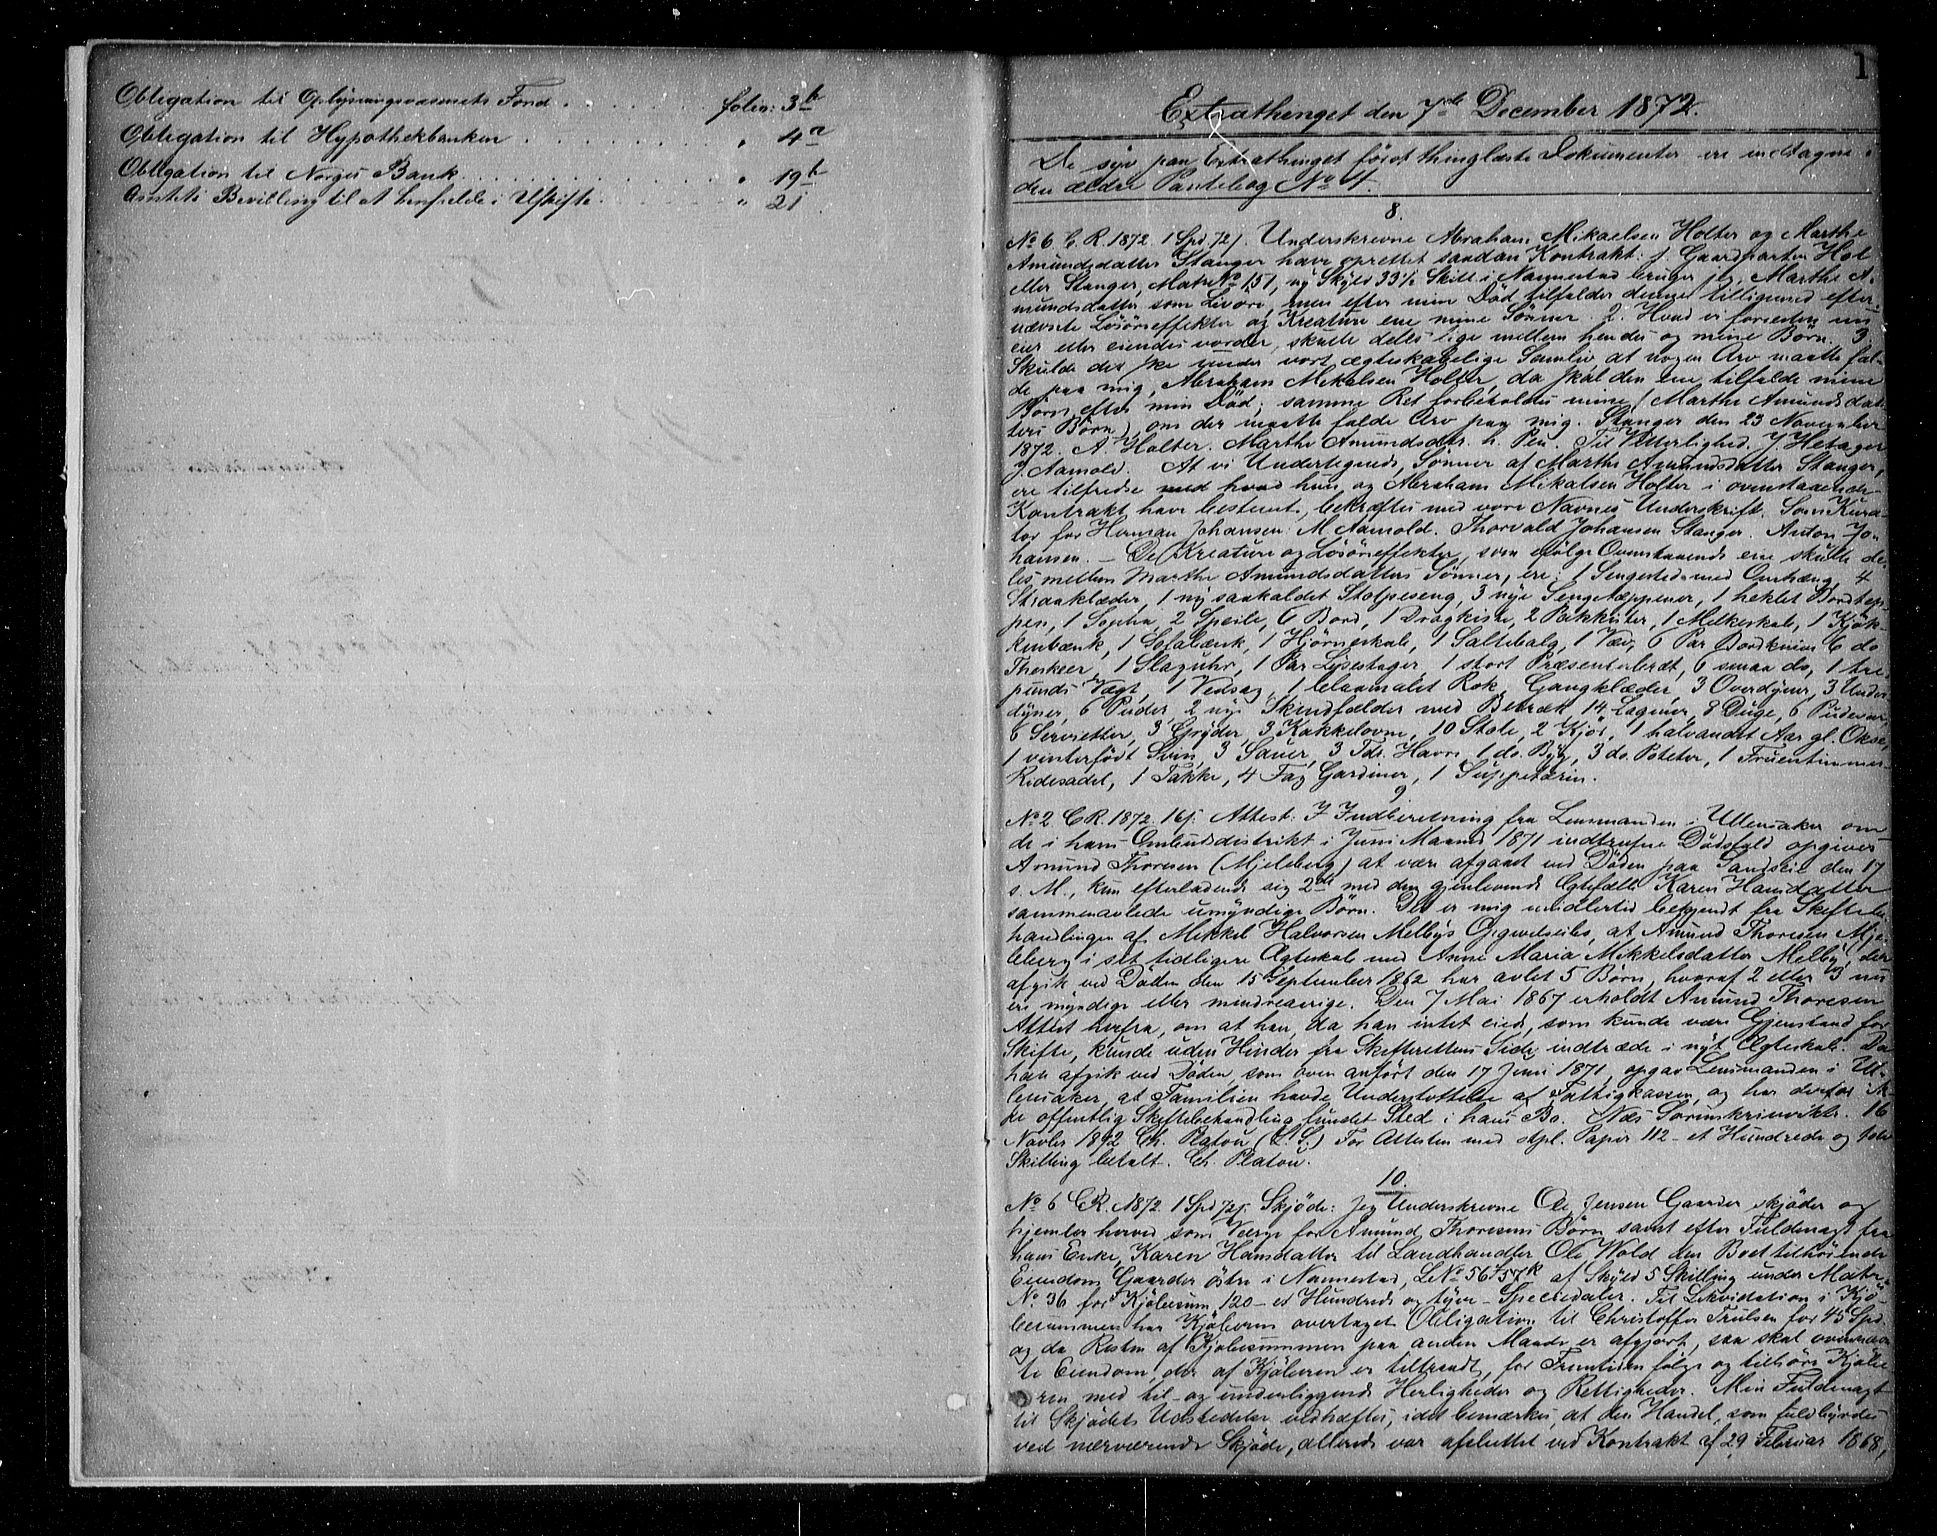 Obligation til Oplysningsvæsenets Fond . . . . . . . folio: 3b
Obligation til Hypothekbanken . . . . . . . . " 4a
Obligation til Norges Bank . . . . . . . . . " 19b
Amtets Bevilling til at henfidde i Uskifte . . . . . " 21
1
Extrathinget den 7de December 1872.
De syv paa Extrathinget först thinglæste Dokumenter ere indtagne i
den ældre Pantebog No 4.
8.
No 6 C.R. 1872. 1 Spd. 72 j. Underskrevne Abraham Mikaelsen Holter og Marthe
Amundsdatter Stanger have oprettet saadan Kontrakt: 1. Gaardparten Hol-
eller Stanger, Matr No 151, ny Skyld 33½ Skill i Nannestad bruger jeg, Marthe A-
mundsdatter som Livöre, men efter min Död tilfalder denne tilligemed efter-
nævnte Lösöreeffekter og Kreature ene mine Sönner. 2. Hvad vi forresten nu
eier eller eiendes vorder, skulle deles lige mellem hendes og mine Börn. 3.
Skulde det ske under vort ægteskabelige Samliv at nogen Arv maatte fal-
de paa mig, Abraham Mikalsen Holter, da skal den ene tilfalde mine
Börn efter min Död; samme Ret forbeholdes mine (Marthe Amundsdat-
ters Börn), om der maatte falde Arv paa mig. Stanger den 23 November
1872. A. Holter. Marthe Amundsdtr. m. Pen. Til Vitterlighed. J Hetager
J Aamold. At vi Undertegnede, Sönner af Marthe Amundsdatter Stanger,
ere tilfredse med hvad hun og Abraham Mikalsen Holter i ovenstaaende
Kontrakt have bestemt, bekræftes med vore Navnes Underskrift. Som Kura-
tor for Herman Johansen: M Aamold. Thorvald Johansen Stanger. Anton Jo-
hansen. – De Kreature og Lösöreeffekter, som ifölge Ovenstaaende ene skulle de-
les mellem Marthe Amundsdatters Sönner, ere: 1 Sengested med Omhæng, 4
Straaklæder, 1 ny saakaldet Stolpeseng, 3 nye Sengetæppener, 1 heklet Bordtep-
pen, 1 Sopha, 2 Speile, 6 Bord, 1 Dragkiste, 2 Pakkister, 1 Melkeskab, 1 Kjök-
kenbænk, 1 Sofabænk, 1 Hjörneskab, 1 Saltebalg, 1 Væv, 6 Par Bordknive 6 do
Theskeer, 1 Slaguhr, 1 Par Lysestager 1 stort Præsenterbræt, 6 smaa do, 1 tre
punds Vægt, 1 Vedsag, 1 blaamalet Rok, Gangklæder, 3 Overdyner, 3 Under
dyner, 6 Puder, 2 nye Skindfælder med Betræk 14 Lagener, 8 Duge, 6 Pudevar
6 Servietter, 3 Gryder, 3 Kakkelovne, 10 Stole, 2 Kjör, 1 halvandet Aar gl. Okse,
1 vinterfödt Svin, 3 Sauer, 3 Tdr. Havre, 1 do. Byg, 3 do. Poteter, 1 Fruentimmer-
Ridesadel, 1 Takke, 4 Fag Gardiner, 1 Suppeterin.
9
No 2 C.R. 1872. 16 j. Attest: I Indberetning fra Lensmanden i Ullensaker om
de i hans Ombudsdistrikt i Juni Maaned 1871 indtrufne Dödsfald opgives
Amund Thoresen (Mjeleberg) at være afgaaet ved Döden paa Sandseie den 17
s. M., kun efterladende sig 2de med den gjenlevende Ægtefælle Karen Hansdatter
sammenavlede umyndige Börn. Det er mig imidlertid bekjendt fra Skiftebe
handlingen af Mikkel Halvorsen Melbys Opgivelsesbo, at Amund Thoresen Mje-
leberg i sit tidligere Ægteskab med Anne Maria Mikkelsdatter Melby, der
afgik ved Döden den 15 September 1862 har avlet 5 Börn, hvoraf 2 eller 3 nu
ere myndige eller mindreaarige. Den 7 Mai 1867 erholdt Amund Thoresen
Attest herfra, om at han, da han intet eiede, som kunde være Gjenstand for
Skifte, kunde uden Hinder fra Skifterettens Side indtræde i nyt Ægteskab. Da
han afgik ved Döden, som oven anfört den 17 Juni 1871, opgav Lensmanden i Ul-
lensaker, at Familien havde Understöttelse af Fattigkassen, og har derfor ik-
ke offentlig Skiftebehandling fundet Sted i hans Bo. Næs Sorenskriverkt. 16
Novbr 1872 Ch. Platou (L.S.) For Attesten med stpl. Papir 112 – et Hundrede og tolv
Skilling betalt. Ch. Platou.
10.
No 6 C.R. 1872 1 Spd 72 j. Skjöde: Jeg Underskrevne Ole Jensen Gaarder skjöder og
hjemler herved som Værge for Amund Thoresens Börn samt efter Fuldmagt fra
hans Enke, Karen Hansdatter til Landhandler Ole Wold den Boet tilhörende
Eiendom Gaarder östre i Nannestad, LNo 56 & 57k af Skyld 5 Skilling under Matr.
No. 36 for Kjöbesum 120 – et Hundrede og tyve – Speciedaler. Til Likvidation i Kjö-
besummen har Kjöberen overtaget Obligation til Christoffer Trulsen for 45 Spd.
og da Resten af Kjöbesummen paa anden Maade er afgjort, saa skal ovennævn
te Eiendom, der af Kjöberen er tiltraadt, for Fremtiden fölge og tilhöre Kjöbe
ren med til- og underliggende Herligheder og Rettigheder. Min Fuldmagt
til Skjödets Udstedelse vedhæftes, idet bemærkes, at den Handel, som fuldbyrdes
ved nærværende Skjöde, allerede var afsluttet ved Kontrakt af 29 Februar 1868,